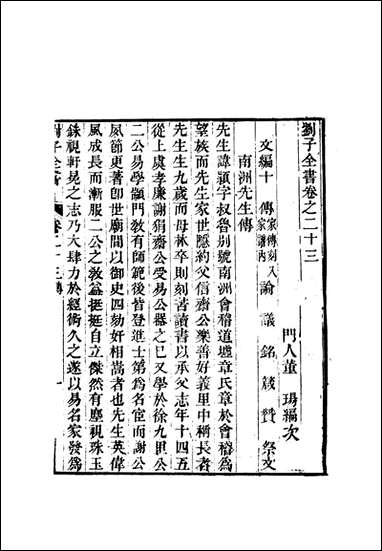 劉子全書卷之二十三
門人董瑒編次
文編十 傳家傳刻入家譜內 論 議 銘 箴 贊 祭文
南洲先生傳
先生諱頴字叔魯別號南洲會稽道墟章氏章於會稽爲
望族而先生家世隱約父信齋公樂善好義里中稱長者
先生生九歲而母林卒則刻苦讀書以承父志年十四五
從上虞孝廉謝狷齋公受易公器之已又學於徐九臯公
二公易學顓門教有師範後皆登進士第爲名宦而謝公
夙節更著卽世廟間以御史四劾奸相嵩者也先生英偉
風成長而漸服二公之敎益挺挺自立傑然有塵視珠玉
銖視軒冕之志乃大肆力於經術久之遂以易名家發爲